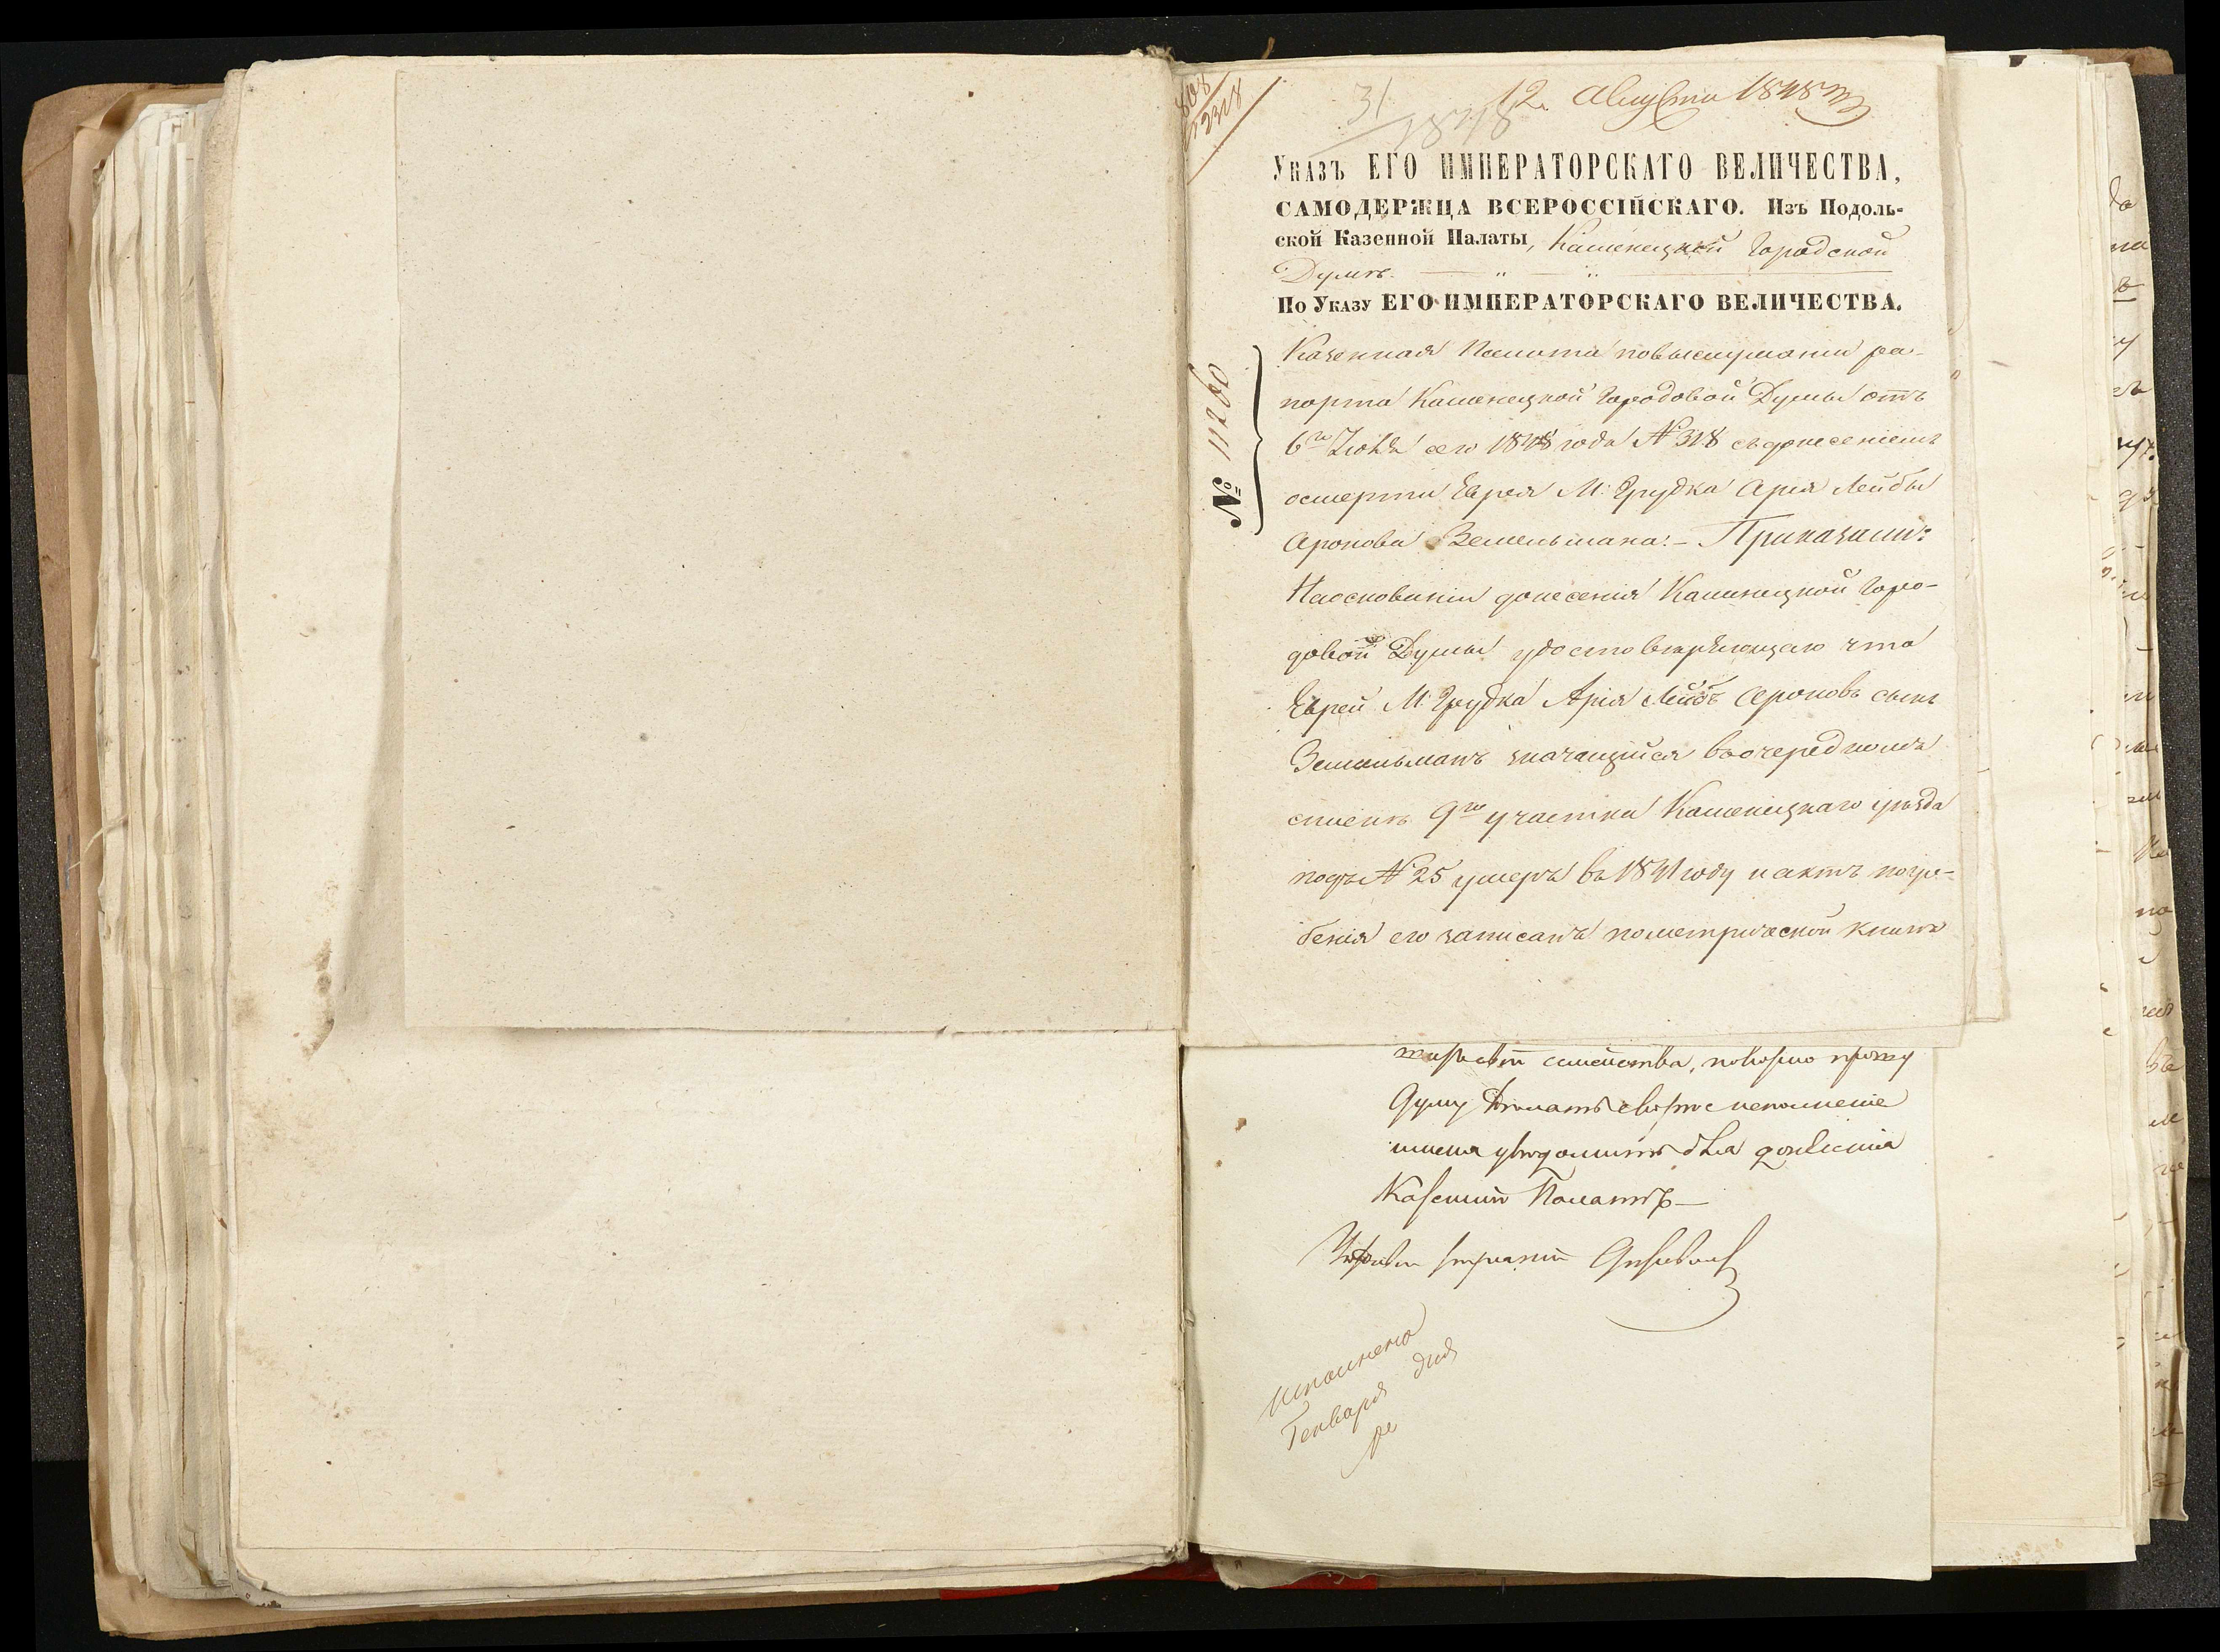 12. Августа 1848
31
1848
Указъ ЕГО ИМПЕРАТОРСКАГО ВЕЛИЧЕСТВА,
САМОДЕРЖЦА ВСЕРОССІЙСКАГО. Изъ Подоль-
ской Казенной Палаты, Каменецкой Городской
Думѣ.
По Указу ЕГО ИМПЕРАТОРСКАГО ВЕЛИЧЕСТВА.
№ 11260
Казенная Палата повыслушании ра-
порта Каменецкой Городовой Думы отъ
6го Іюля сего 1848 года № 318 съ донесеніемъ
осмерти Еврея М: Грудка Арія Лейбы
Аронова Земельмана:- Приказали:
Наосновании донесенія Каменецкой Горо-
довой Думы удостовѣряющаго что
Еврей М. Грудка Арія Лейбъ Ароновъ сынъ
Земельманъ значащійся въочередномъ
спискѣ 9го участка Каменецкаго уѣзда
подъ № 25 умеръ въ 1841 году и актъ погре-
бенія его записанъ пометрической книгѣ
семейства, покорно прошу
Думу
меня увѣдомить для донесенія
Казенной Палатѣ
Исполнено
Генваря дня